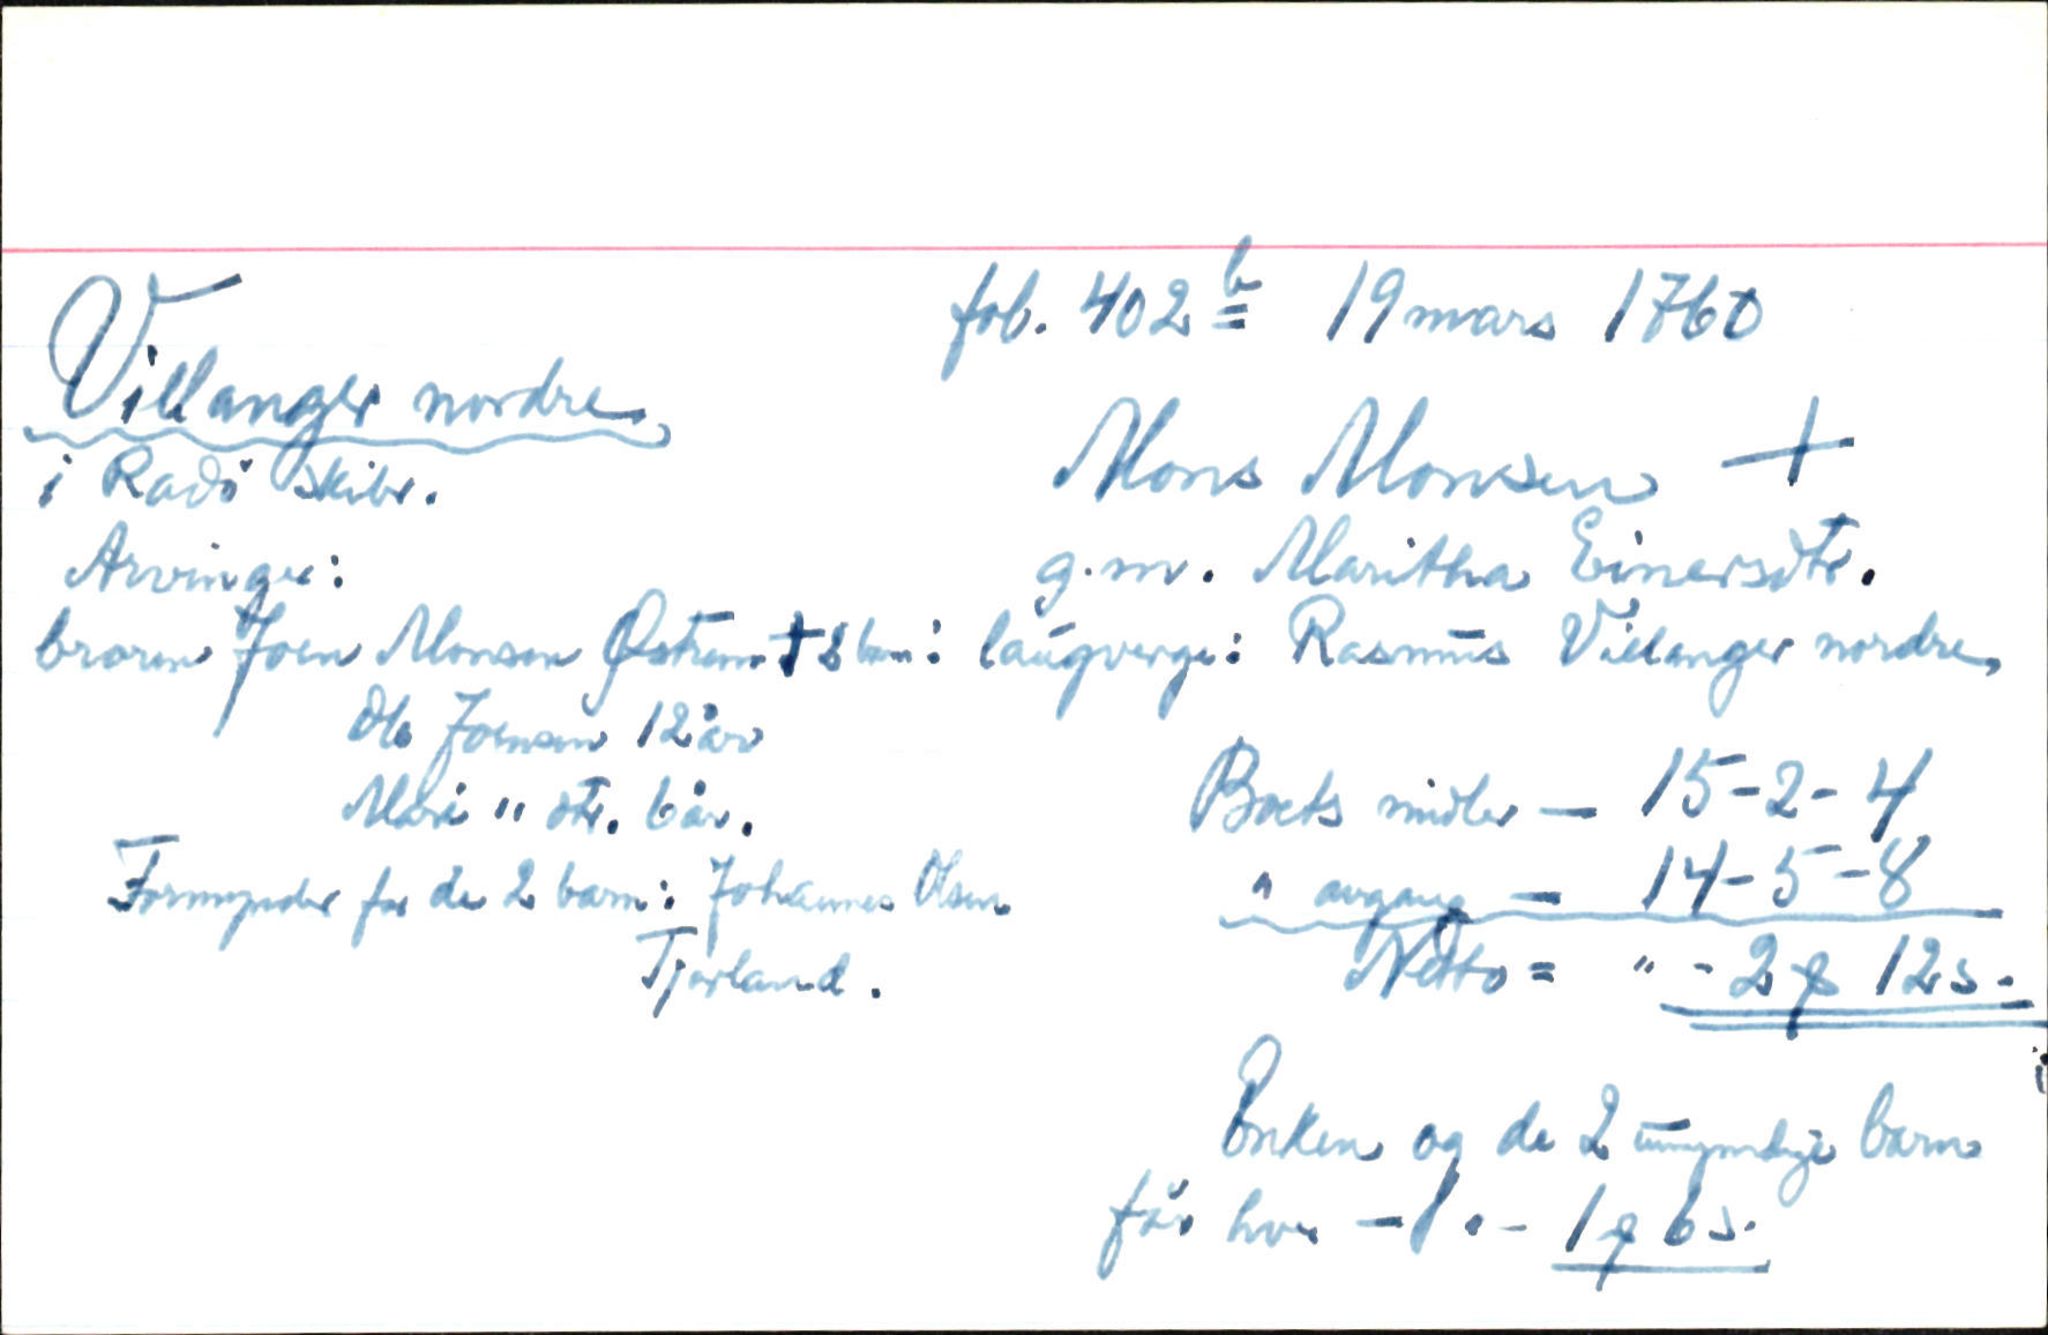 fol. 402 b 19 mars 1760
Villanger nordre
i Radö skibr.
Mons Monsen +
g.m. Maritha Einersdtr.
Arvinger:
broren Joen Monsen Østrem † 2 barn:
laugverge: Rasmus Villanger nordre,
Ole Joensen 12 år
Mari " dtr. 6 år.
Formynder for de 2 barn: Johannes Olsen
Tjorland.
Boets midler — 15-2-4
" avgang — 14-5-8
Netto = " - 2 12 s.
Enken og de 2 umyndige barn
får hver - 1 6 s.